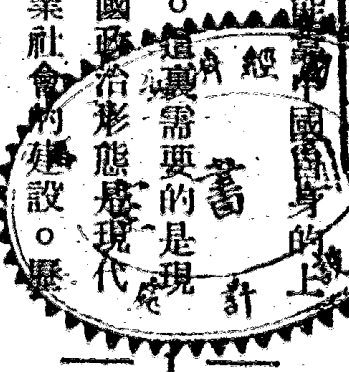 能中國自身的上
。這裏需要的是現
國政治形態是現代
業社會的建設。歷
經
書
計